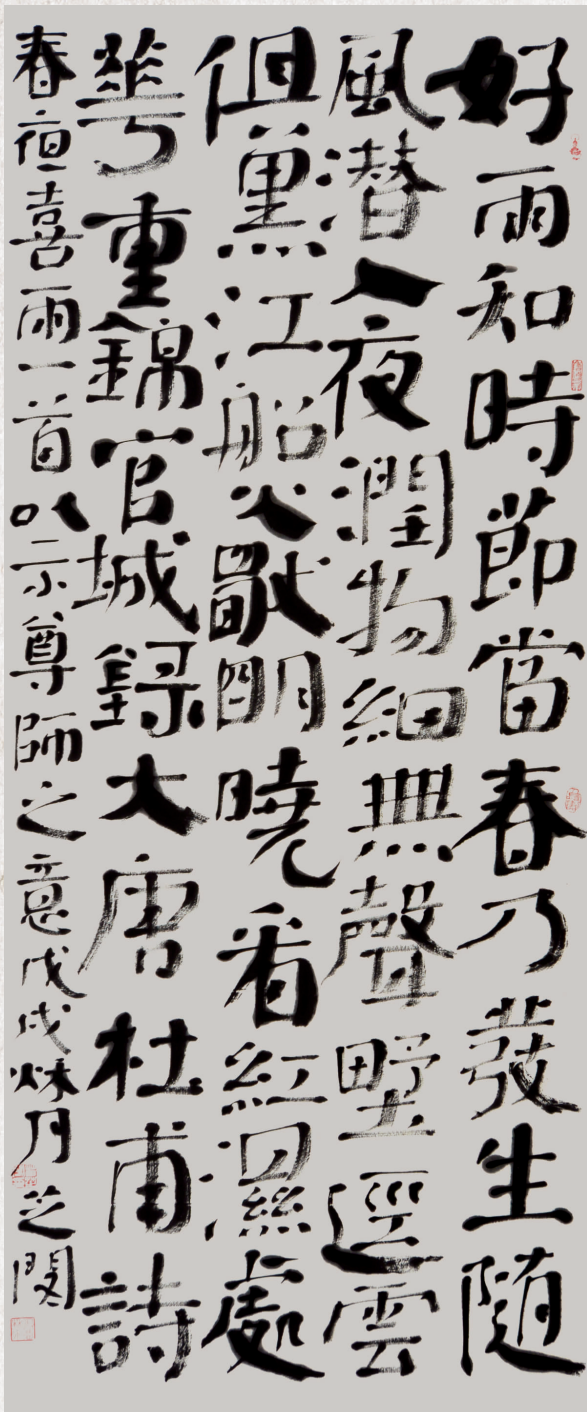 好雨知時節當春乃發生隨
風潜入夜潤物細無聲野逕雲
俱黑江船火獨明曉看紅濕處
華重錦官城録大唐杜甫詩
春夜喜雨一首以示尊師之意戊戌秌月芝